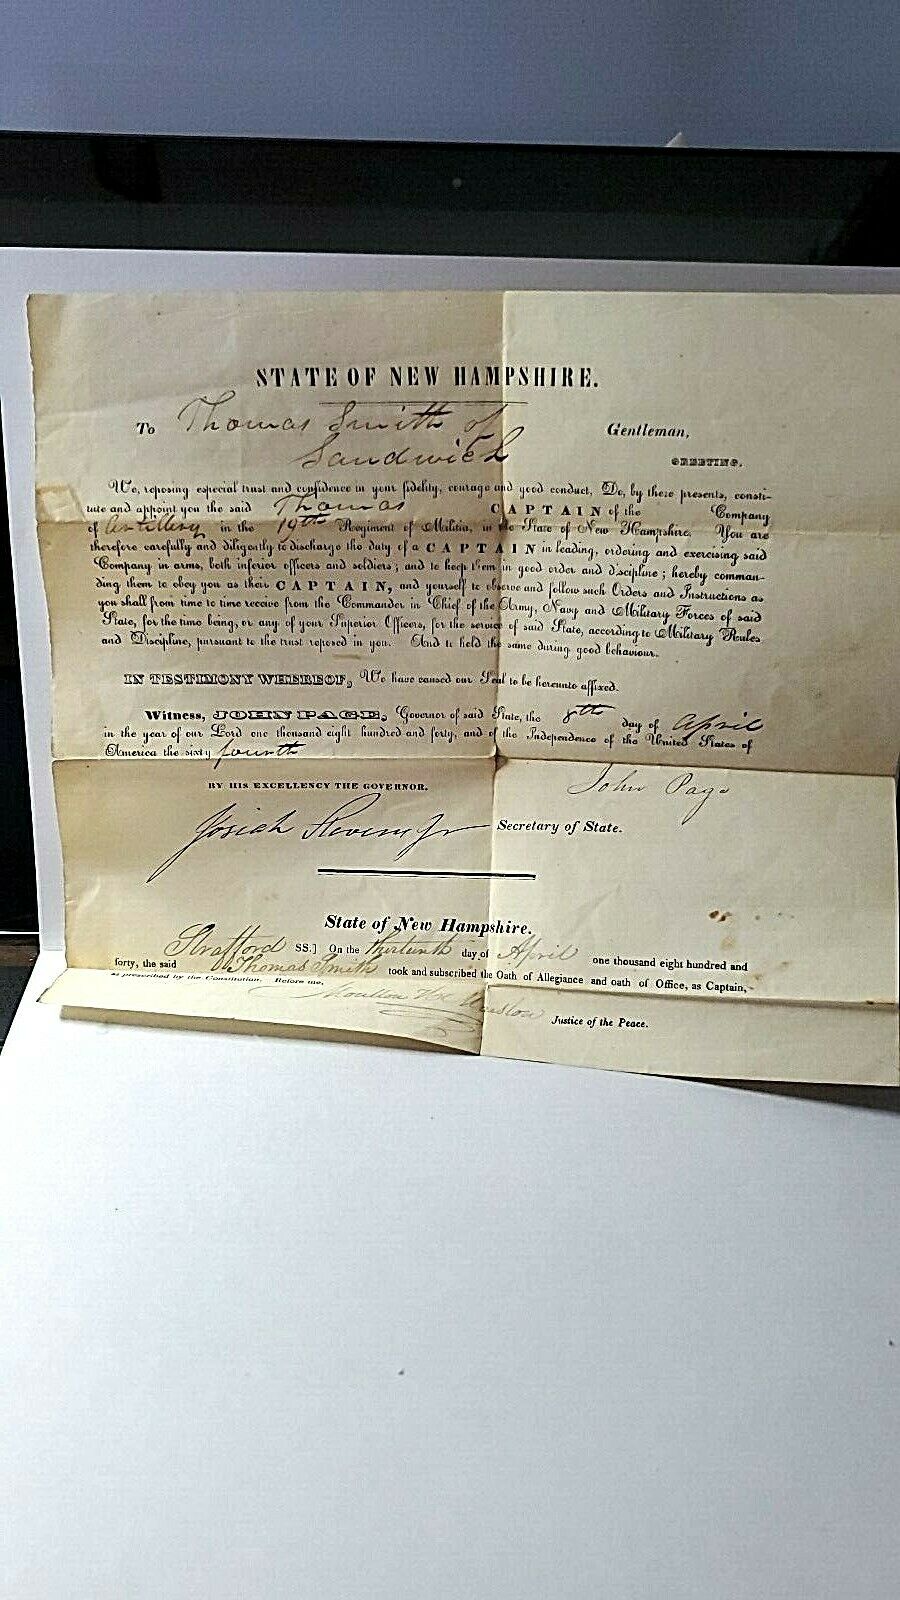 STATE OF NEW HAMPSHIRE.
To Thomas Smith of Gentleman,
Sandwich GREETING.
We, reposing especial trust and confidence in your fidelity, courage and good conduct, Do, by these presents, consti-
tute and appoint you the said Thomas CAPTAIN of the Company
of Artillery in the 19th Regiment of Militia, in the State of New Hampshire. You are
therefore carefully and diligently to discharge the duty of a CAPTAIN in leading, ordering and exercising said
Company in arms, both inferior officers and soldiers; and to keep them in good order and discipline; hereby comman-
ding them to obey you as their CAPTAIN, and yourself to observe and follow such Orders and Instructions as
you shall from time to time receive from the Commander in Chief of the Army, Navy and Military Forces of said
State, for the time being, or any of your Superior Officers, for the service of said State, according to Military Rules
and Discipline, pursuant to the trust reposed in you. And to hold the same during good behaviour.
IN TESTIMONY WHEREOF, We have caused our Seal to be hereunto affixed.
Witness, JOHN PAGE, Governor of said State, the 8th day of April
in the year of our Lord one thousand eight hundred and forty, and of the Independence of the United States of
America the sixty fourth
BY HIS EXCELLENCY THE GOVERNOR. John Page
Josiah Stevens Jr Secretary of State.
State of New Hampshire.
Strafford SS.] On the thirteenth day of April one thousand eight hundred and
forty, the said Thomas Smith took and subscribed the Oath of Allegiance and oath of Office, as Captain,
as prescribed by the Constitution. Before me,
Justice of the Peace.